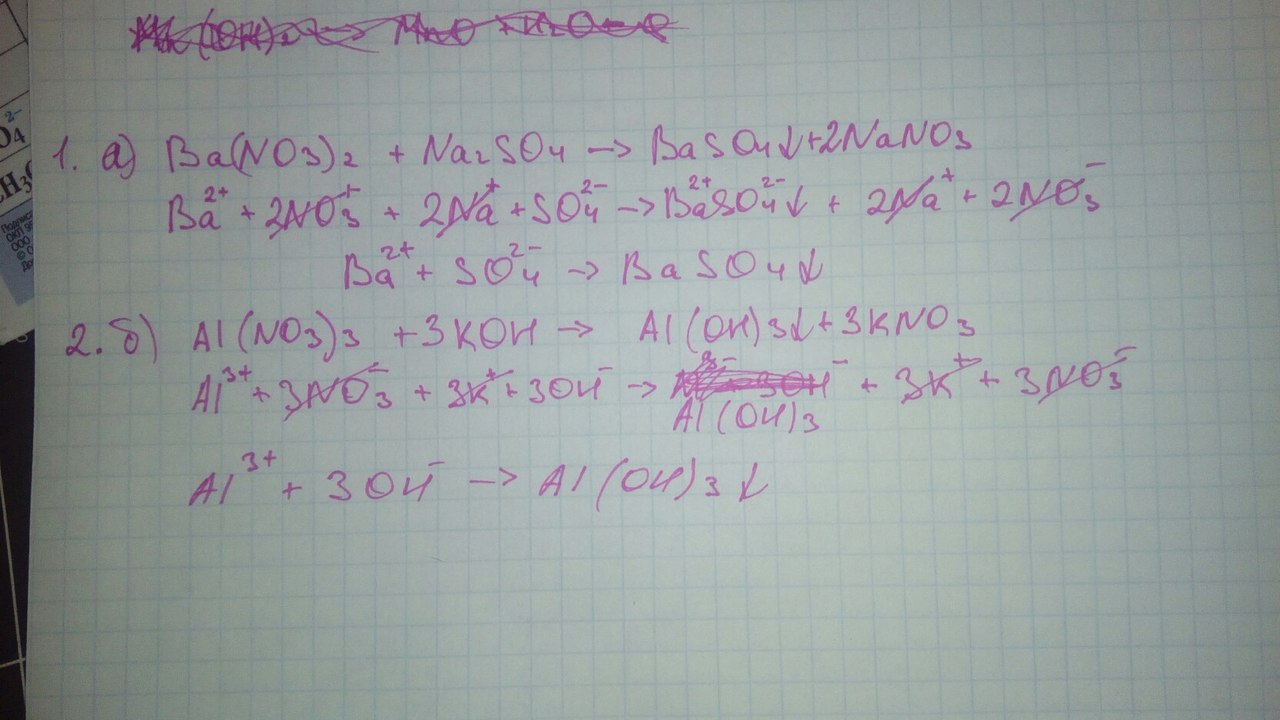 1. а) Ba(NO3)2 + Na2SO4 → BaSO4↓+2NaNO3
Ba²⁺ + 2NO3⁺ + 2Na⁺ + SO4²⁻ → Ba²⁺SO4²⁻↓ + 2Na⁺ + 2NO3⁻
Ba²⁺ + SO4²⁻ → BaSO4↓
2. б) Al(NO3)3 + 3KOH → Al(OH)3↓+3KNO3
Al³⁺ + 3NO3⁻ + 3K⁺ + 3OH⁻ → Al(OH)3 + 3K⁺ + 3NO3⁻
Al³⁺ + 3OH⁻ → Al(OH)3↓